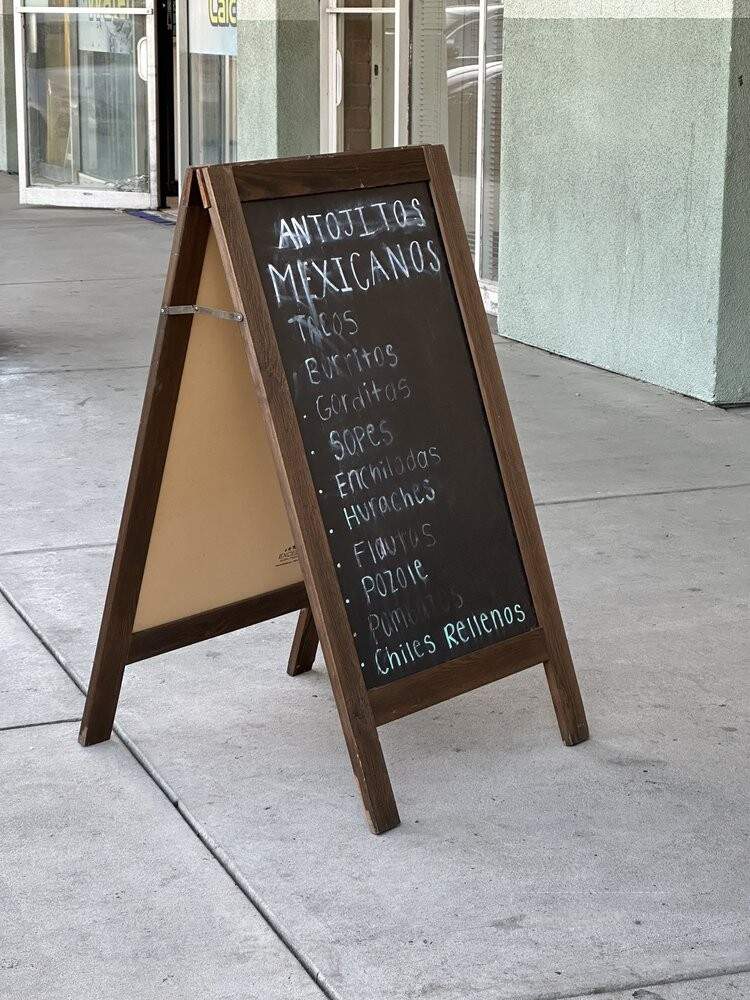 ANTOJITOS
MEXICANOS
TACOS
Burritos
· Gorditas
· SOPES
· Enchiladas
· Huraches
· Flautas
· POZOLE
· Chiles Rellenos